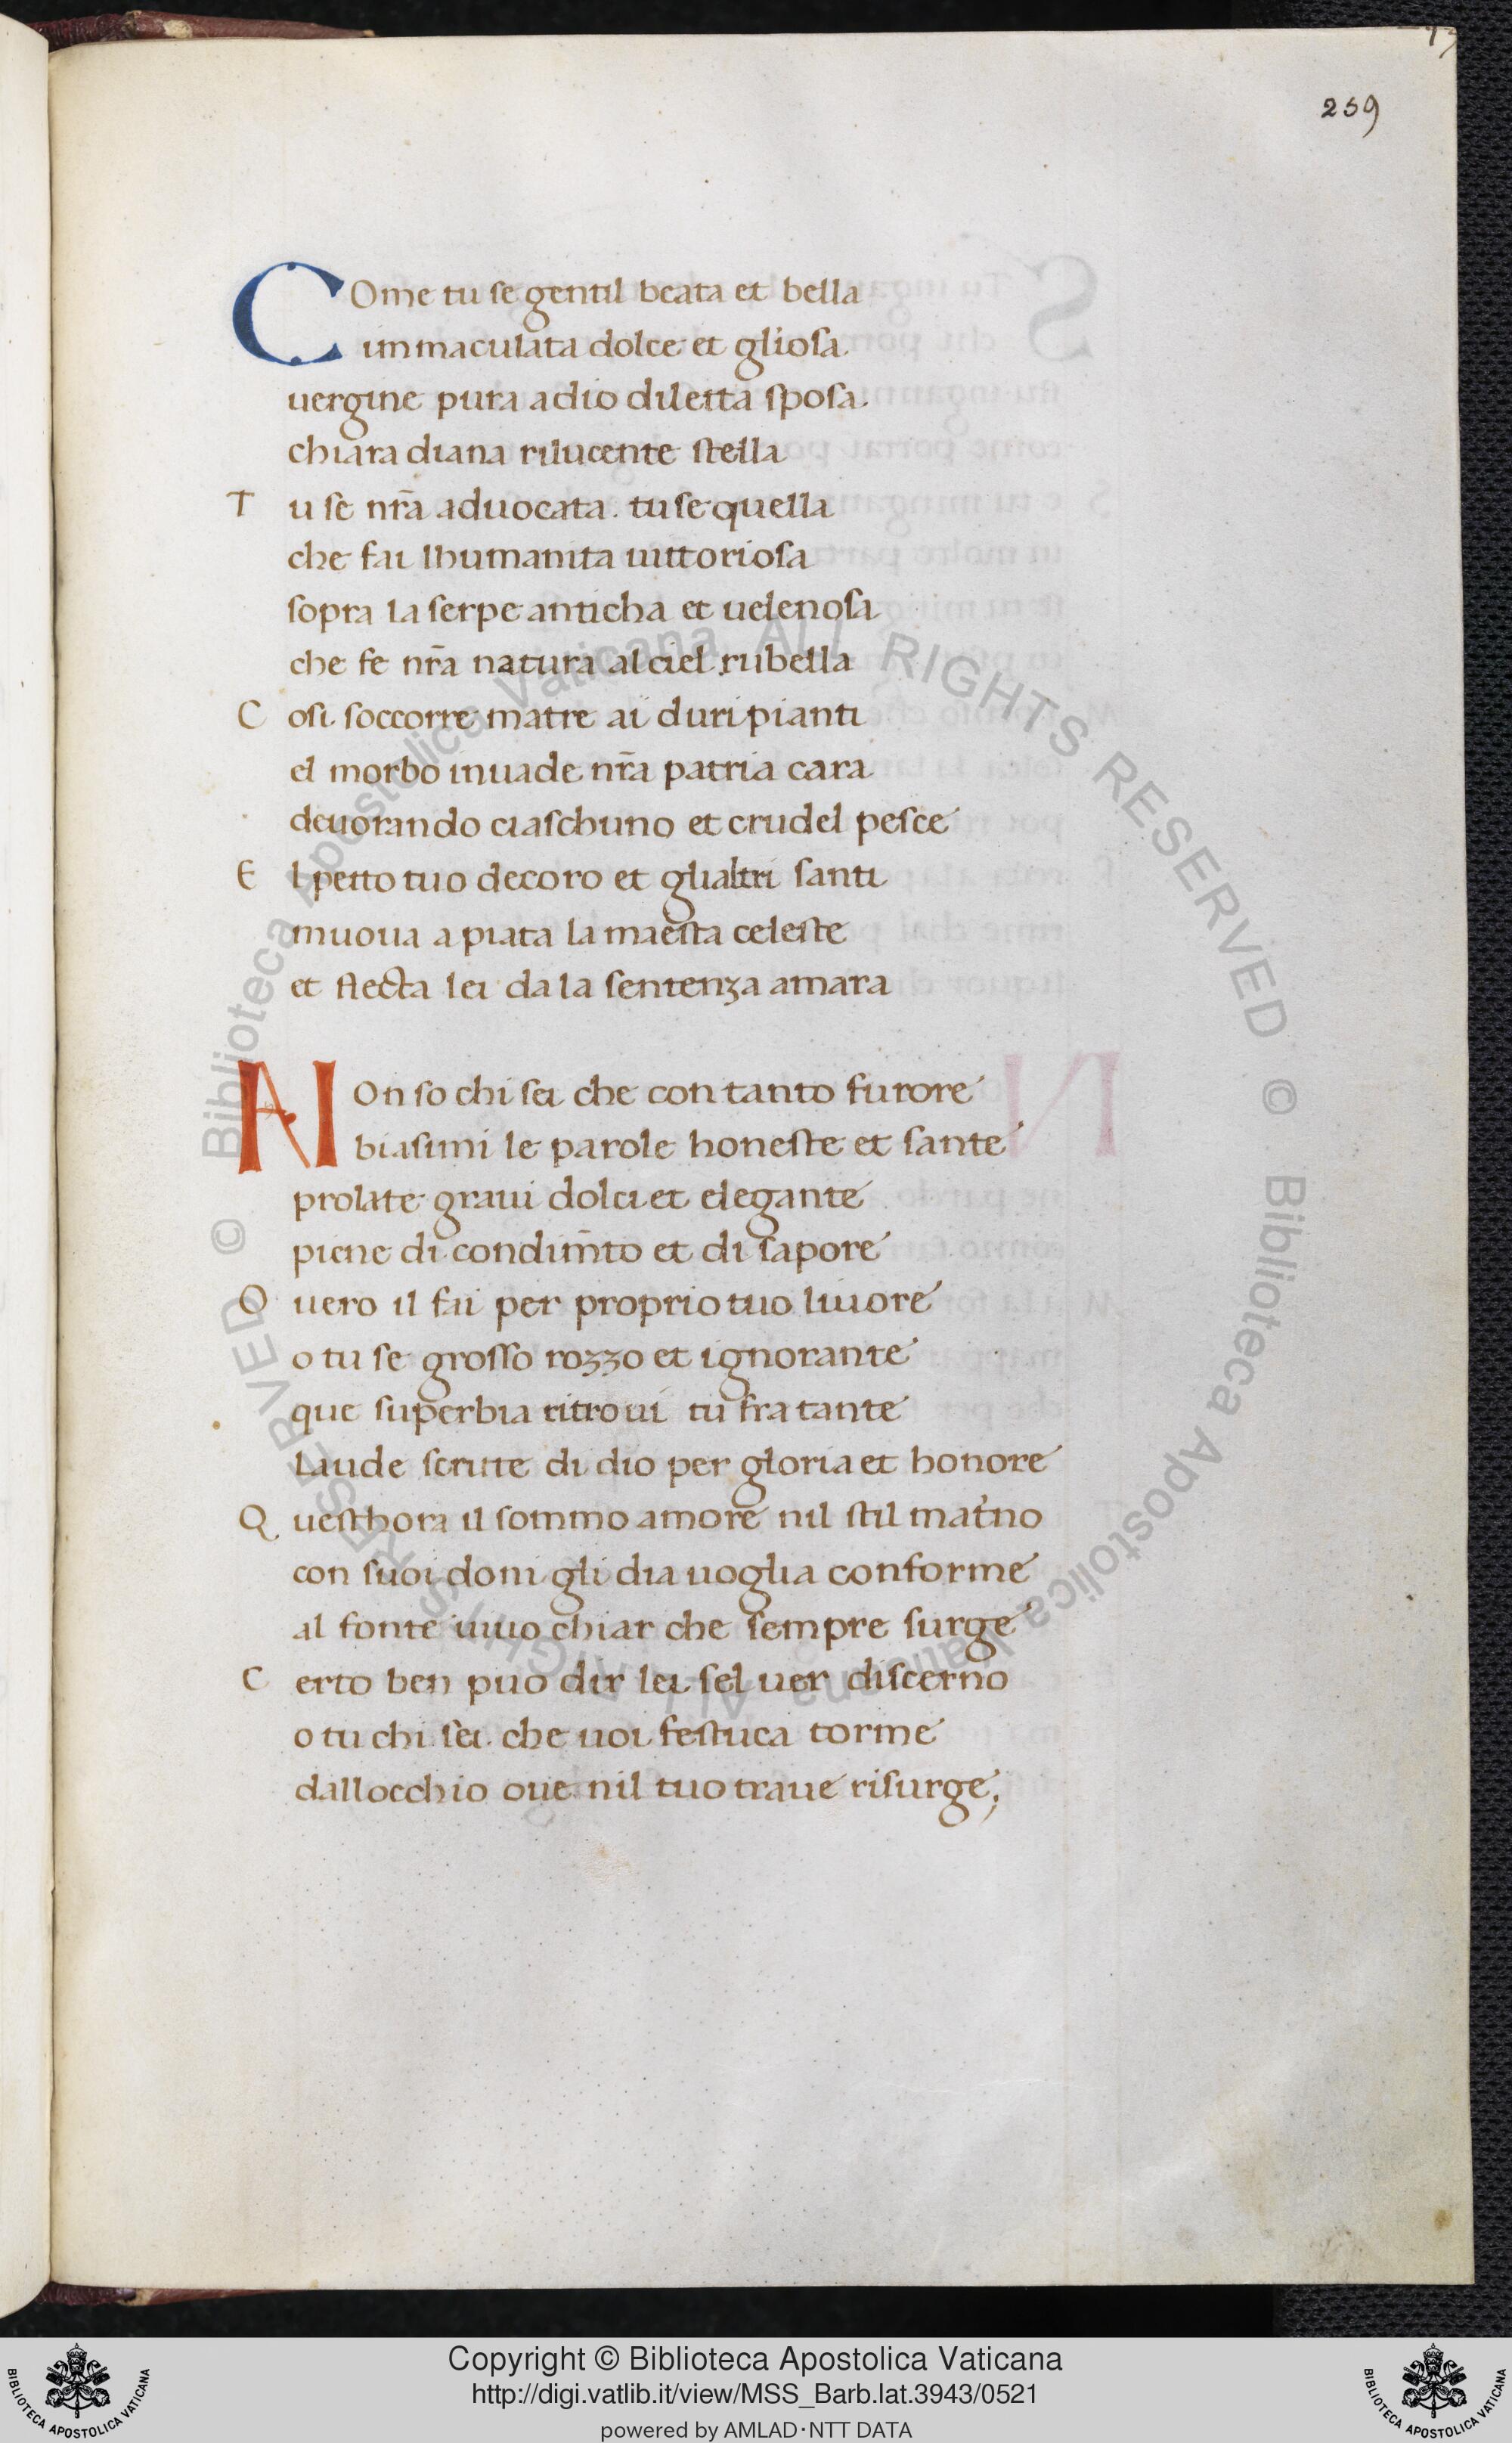 259
COme tu se gentil beata et bella
immaculata dolce et gliosa.
uergine pura a dio diletta sposa.
chiara diana rilucente stella
Tu se nr̄a aduocata. tu se quella
che fai lhumanita uittoriosa
sopra la serpe anticha et uelenosa
che fe nr̄a natura al ciel rubella
Cosi soccorre matre ai duri pianti
el morbo inuade nr̄a patria cara
deuorando ciaschuno et crudel pesce
El petto tuo decoro et glialtri santi
muoua a piata la maesta celeste
et flecta lei da la sentenza amara
NOn so chi sei che con tanto furore
biasimi le parole honeste et sante
prolate graui dolci et elegante
piene di condim̄to et di sapore
Ouero il fai per proprio tuo liuore
o tu se grosso rozzo et ignorante
que superbia ritroui tu fra tante
Laude scritte di dio per gloria et honore
Questhora il sommo amore nil stil mat'no
con suoi doni gli dia uoglia conforme
al fonte uiuo chiar che sempre surge
Certo ben puo dir lei sel uer discerno
o tu chi sei che uoi festuca torme
dallocchio oue nil tuo traue risurge;
© Biblioteca Apostolica Vaticana ALL RIGHTS RESERVED © Biblioteca Apostolica Vaticana ALL RIGHTS RESERVED
BIBLIOTECA APOSTOLICA VATICANA
Copyright © Biblioteca Apostolica Vaticana
http://digi.vatlib.it/view/MSS_Barb.lat.3943/0521
powered by AMLAD·NTT DATA
BIBLIOTECA APOSTOLICA VATICANA